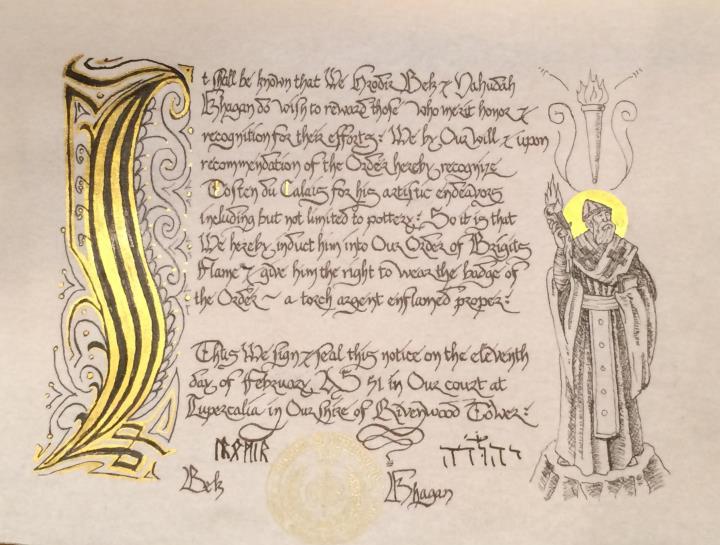 It shall be known that We Hrodir Bek & Yahudah
Khagan do wish to reward those who merit honor &
recognition for their efforts: We by Our will & upon
recommendation of the Order hereby recognize
Tosten du Calais for his artistic endeavors
including but not limited to pottery: So it is that
We hereby induct him into Our Order of Brigits
Flame & give him the right to wear the badge of
the Order ~ a torch argent enflamed proper:
Thus We sign & seal this notice on the eleventh
day of February, AS 51 in Our court at
Lupercalia in Our shire of Rivenwood Tower:
יהודה
Bek Khagan